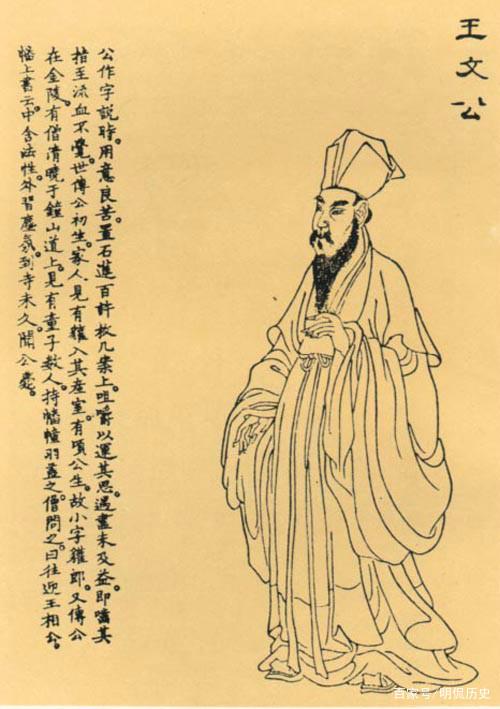 王文公
公作字説時。用意良苦。置石蓮百許枚几案上。咀嚼以運其思。遇盡未及益。即嚙其
指至流血不覺。世傳公初生。家人見有獾入其産室。有頃公生。故小字獾郎。又傳公
在金陵。有僧清曉于鐘山道上。見有童子數人。持幡幢羽蓋之。僧問之。曰往迎王相公。
幡上書云。中含法性。外習塵氛。到寺未久。聞公薨。
百家号/明侃历史